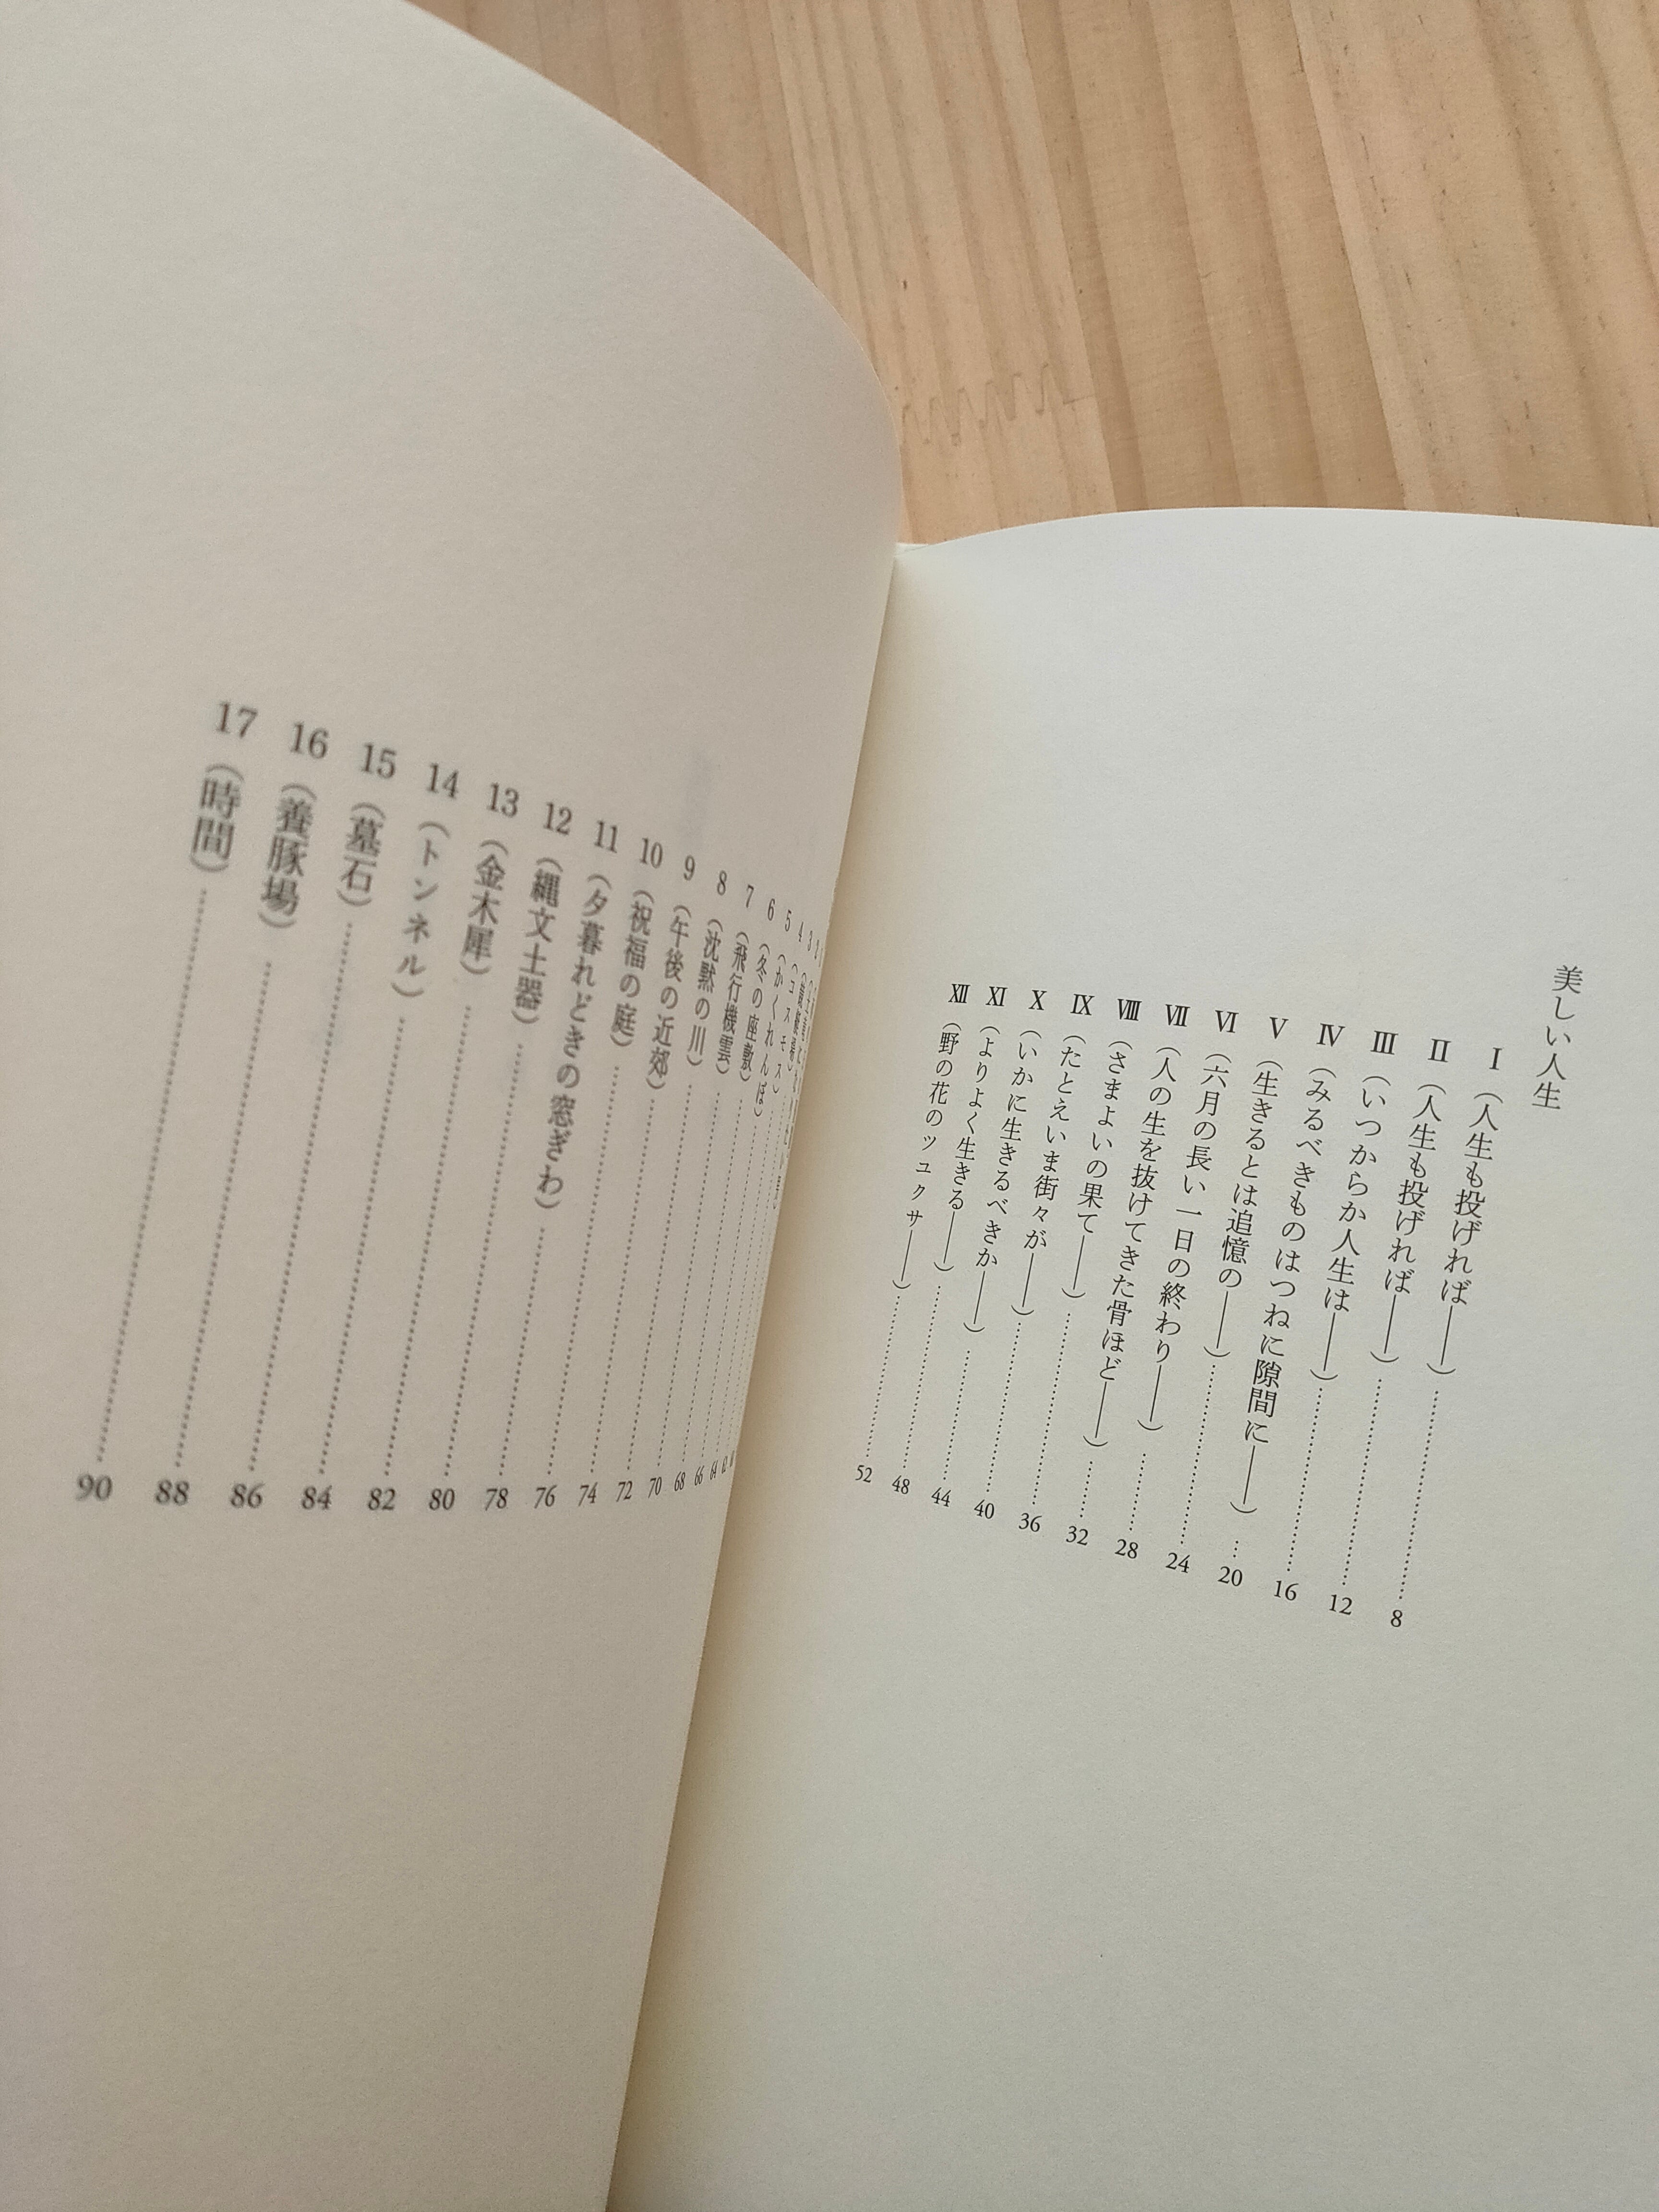 美しい人生
Ⅰ（人生も投げれば――）……………8
Ⅱ（人生も投げれば――）……………12
Ⅲ（いつからか人生は――）……………16
Ⅳ（みるべきものはつねに隙間に――）……20
Ⅴ（生きるとは追憶の――）……………24
Ⅵ（六月の長い一日の終わり――）……28
Ⅶ（人の生を抜けてきた骨ほど――）……32
Ⅷ（さまよいの果て――）……………36
Ⅸ（たとえいま街々が――）……………40
Ⅹ（いかに生きるべきか――）……………44
Ⅺ（よりよく生きる――）……………48
Ⅻ（野の花のツユクサ――）……………52
2
3
4（コスモス）……………64
5（かくれんぼ）……………66
6（冬の座敷）……………68
7（飛行機雲）……………70
8（沈黙の川）……………72
9（午後の近郊）……………74
10（祝福の庭）……………76
11（夕暮れどきの窓ぎわ）……………78
12（縄文土器）……………80
13（金木犀）……………82
14（トンネル）……………84
15（墓石）……………86
16（養豚場）……………88
17（時間）……………90